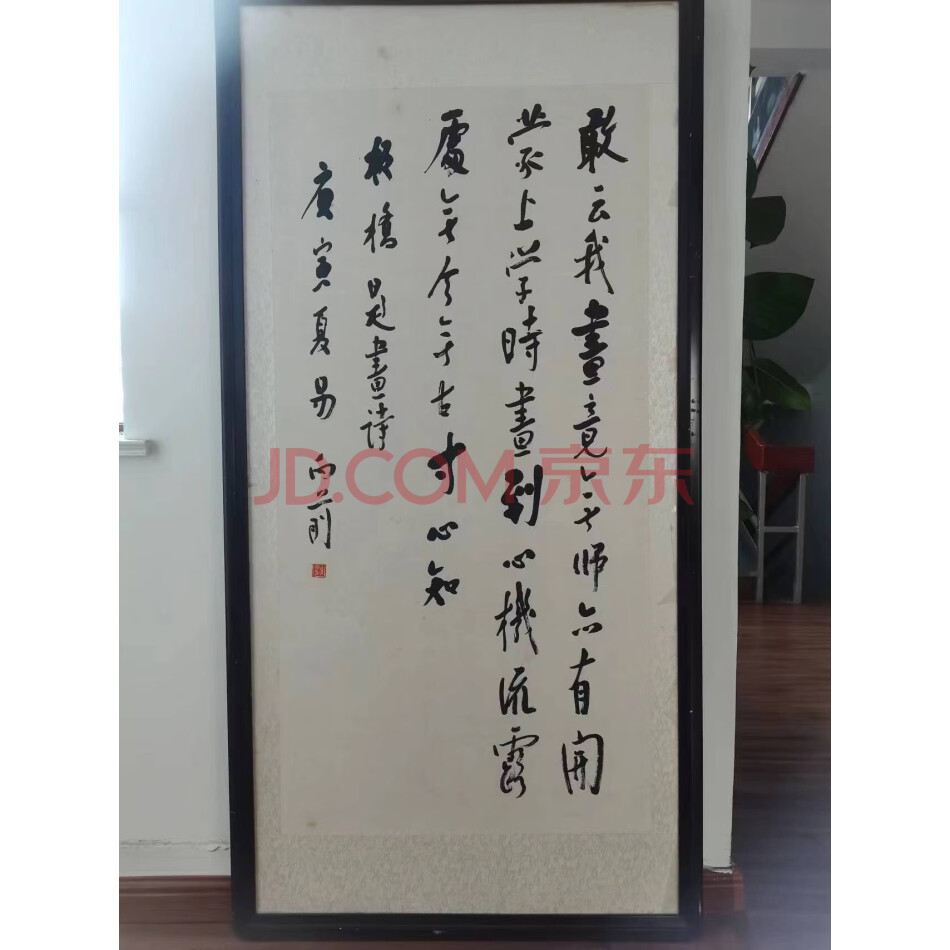 敢云我畫竟無師亦有開
蒙上學時畫到心機流露
處無今無古寸心知
板橋題畫詩
庚寅夏易
JD.COM 京东